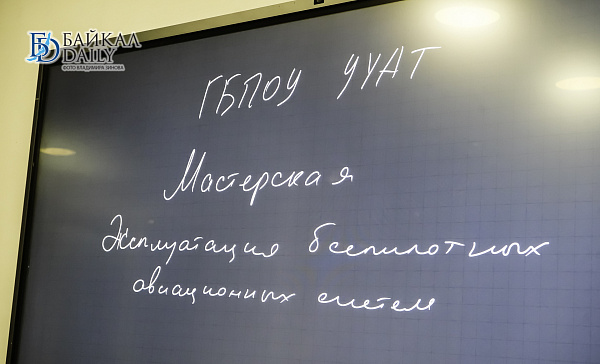 БАЙКАЛ
DAILY
ФОТО ВЛАДИМИРА ЗИНОВА
ГБПОУ УУАТ
Мастерская
Эксплуатация беспилотных
авиационных систем